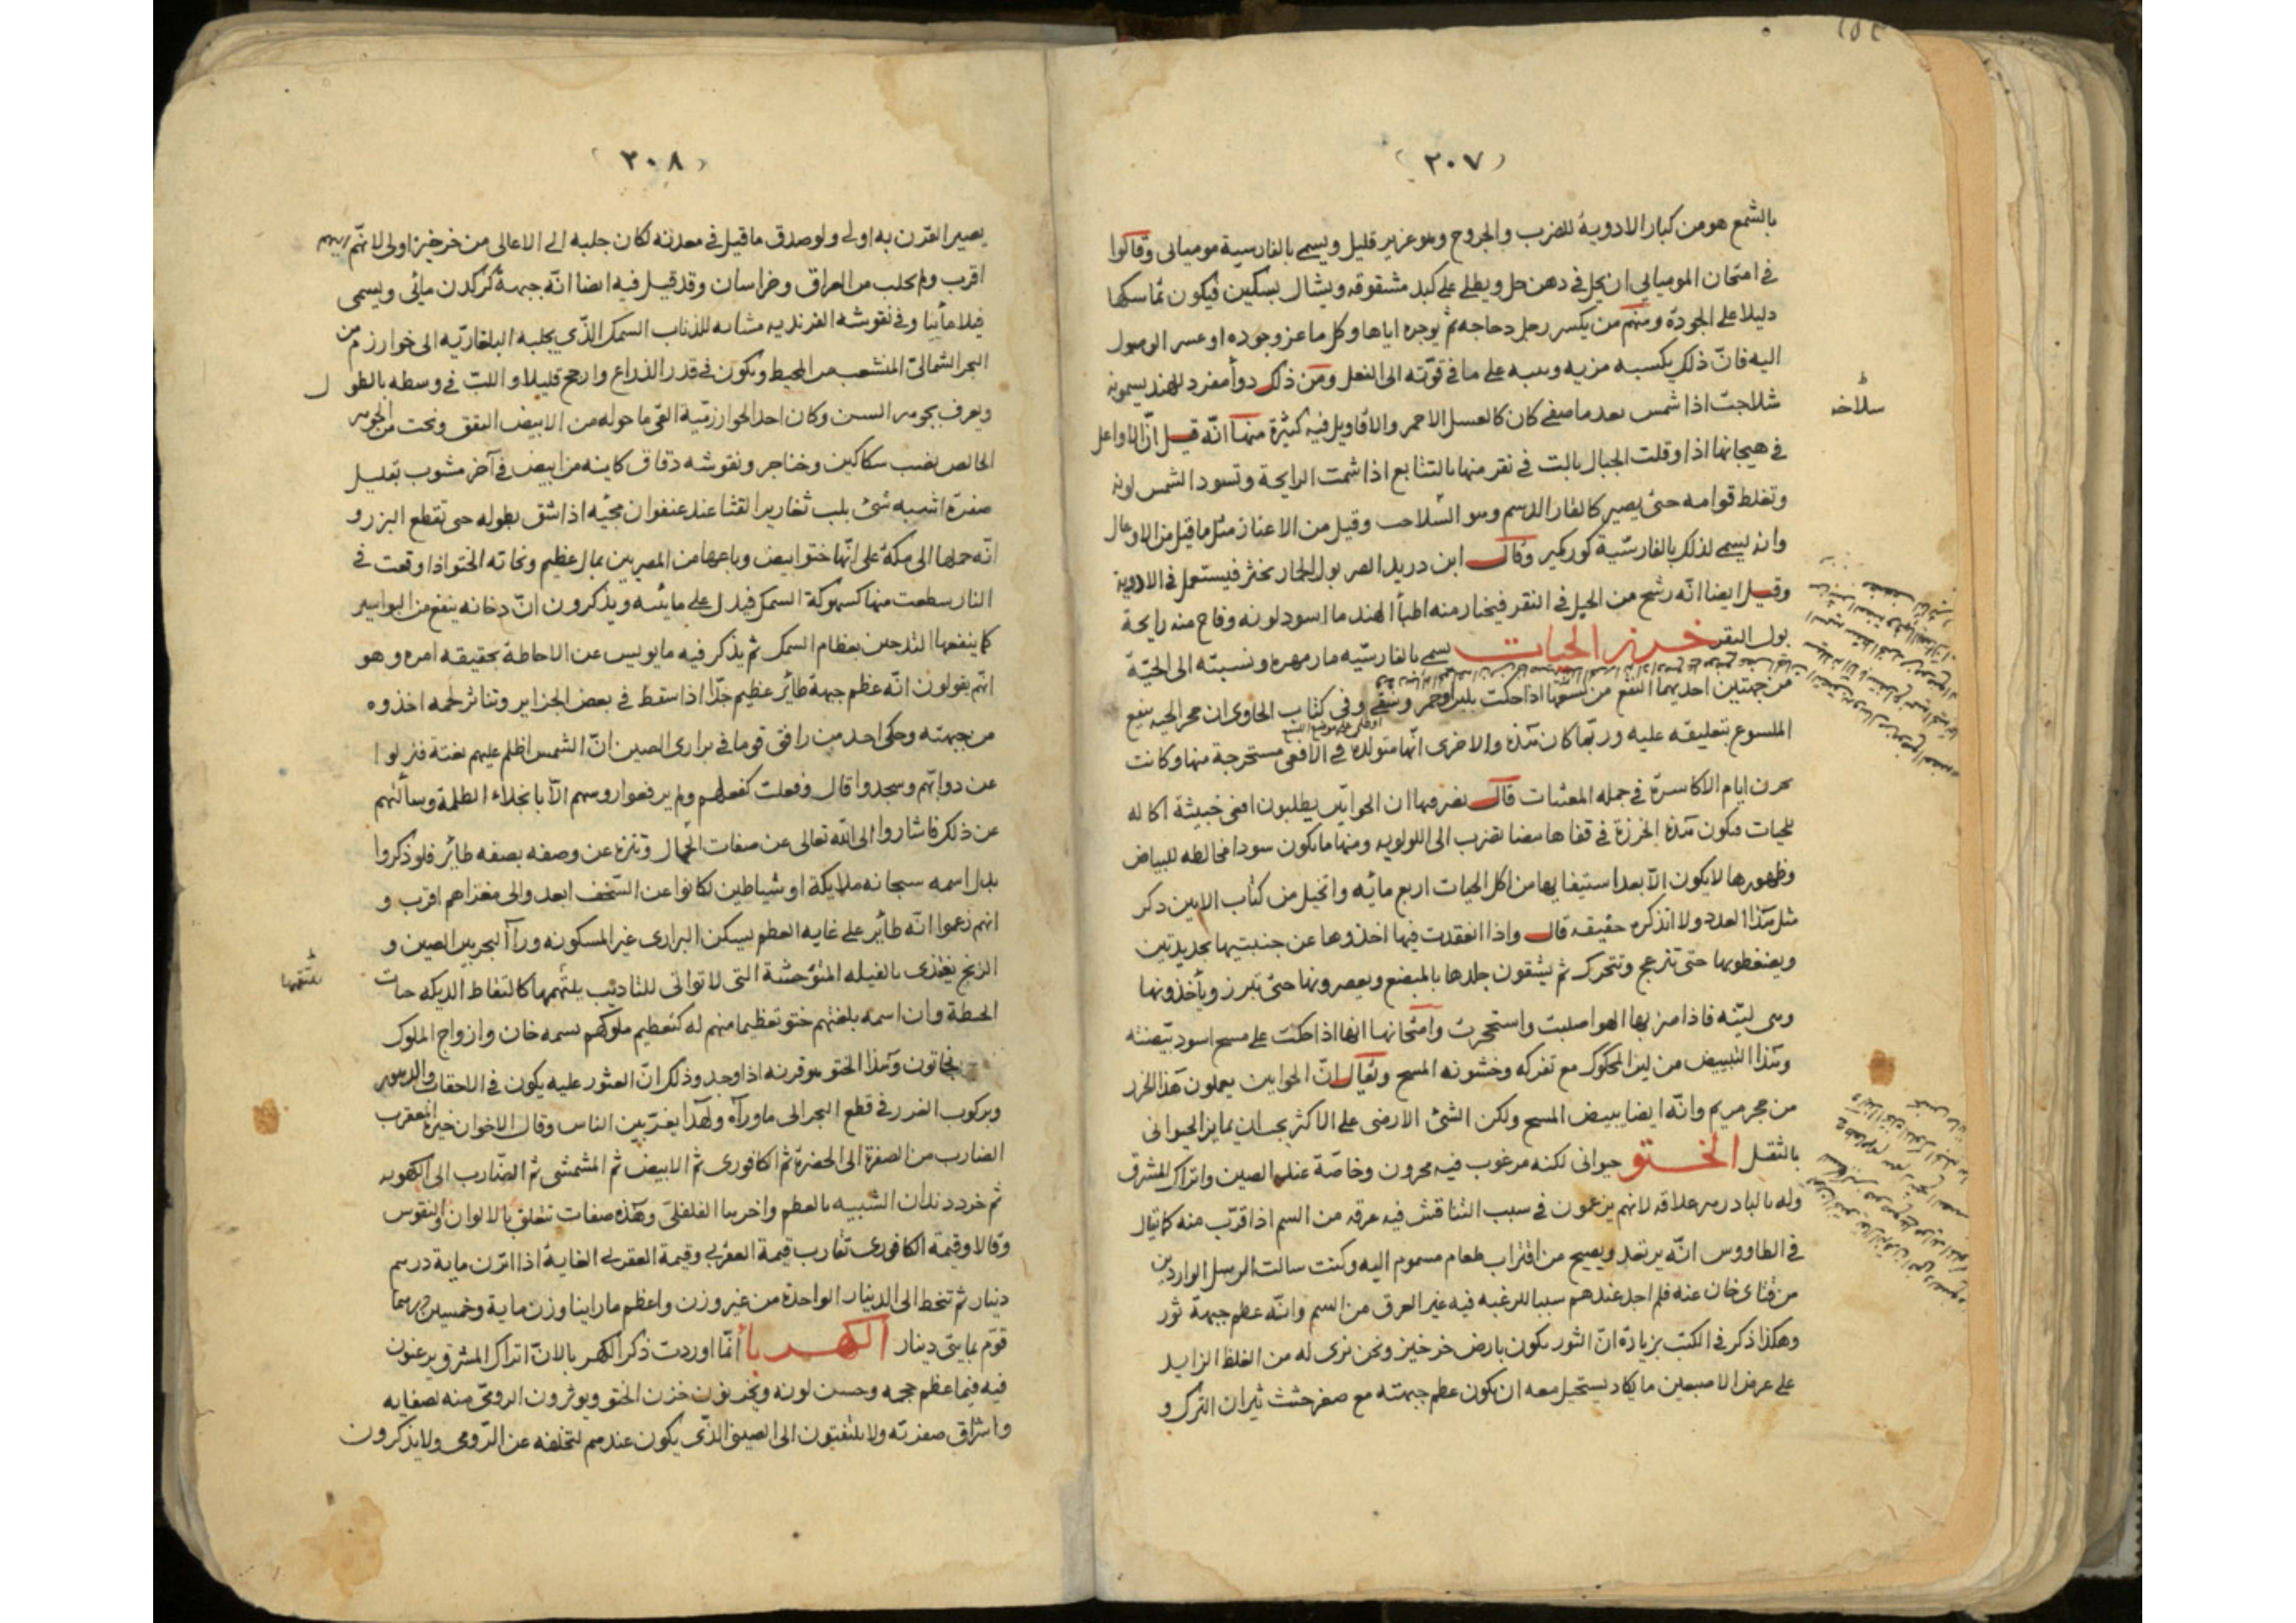 (٢٠٧)
بالشمع هو من كبار الادوية للضرب والجروح وهو عزيز قليل ويسمى بالفارسية موميائى وقالوا
فى امتحان الموميائى ان يحل فى دهن حل ويطلى على كبد مشقوقه ويشال بسكين فيكون تماسكها
دليلا على الجودة ومنهم من يكسر رجل دجاجه ثم يوجره اياها وكل ما عز وجوده او عسر الوصول
اليه فان ذلك يكسبه مزيه على ما فى قوته الى الفعل ومن ذلك دوأ مفرد للهند يسمونه
شلاجت اذا شمس بعد ما صفى كان كالعسل الاحمر والاقاويل فيه كثيرة منها انه قيل ان الاواعل
فى هيجانها اذا وقلت الجبال بالت فى نقر منها بالتتابع اذا شمت الرايحة وتسود الشمس لونه
وتغلظ قوامه حتى يصير كالقار الدسم وهو السلاحه وقيل من الاعناز مثل ما قيل من الاوعال
وانه يسمى لذلك بالفارسية كوركمير وقال ابن دريد الصر بول الجمار يخثر فيستعمل فى الادوية
وقيل ايضا انه رشح من الجبل فى النقر فيختار منه اطبأ الهند ما اسود لونه وفاح منه رايحة
بول البقر خرز الحيات يسمى بالفارسيه مار مهره ونسبته الى الحية
من جهتين احديهما النفع من لسعها اذا حكت بلبن او خمر وسقى وفى كتاب الحاوى ان حجر الحيه ينفع
الملسوع بتعليقه عليه وربما كان هذه والاخرى انها متولدة فى الافعى مستخرجة منها وكانت
تخزن ايام الاكاسرة فى جمله المعشات قال نصر فيها ان الحوايين يطلبون افعى خبيثة اكاله
للحيات فيكون هذه الخرزة فى قفاها بيضا تضرب الى اللولويه ومنها ما يكون سودا مخالطه للبياض
وظهورها لا يكون الا بعد استيفايها من اكل الحيات اربع مائه واتخيل من كتاب الابين ذكر
مثل هذا العدد ولا اتذكره حقيقه قال واذا انعقدت فيها اخذوها عن جنبتيها بحديدتين
ويضغطونها حتى تنزعج وتتحرك ثم يشقون جلدها بالمبضع ويعصرونها حتى تبرز وياخذونها
وهى ليّنه فاذا ضربها الهوا صلبت واستحجرت وامتحانها انها اذا حكت على مسح اسود بيضته
وهذا التبييض من لين المحكوك مع تفركه وخشونه المسح ويقال ان الحوايين يعملون هذا الخرز
من حجر مريم وانه ايضا يبيض المسح ولكن الشئ الارضى على الاكثر يجب ان يمايز الحيوانى
بالثقل الختو حيوانى لكنه مرغوب فيه مخزون وخاصة عند الصين واتراك المشرق
وله بالبادزهر علاقه لانهم يزعمون فى سبب التناقش فيه عرقه من السم اذا قرب منه كما يقال
فى الطاووس انه يرتعد ويصيح من اقتراب طعام مسموم اليه وكنت سالت الرسل الواردين
من قتاى خان عنه فلم اجد عندهم سببا للرغبه فيه غير العرق من السم وانه عظم جبهة ثور
وهكذا ذكر فى الكتب بزيادة ان الثور يكون بارض خرخيز ونحن نرى له من الغلظ الزايد
على عرض الاصبعين ما يكاد يستحيل معه ان يكون عظم جبهته مع صغر جثث ثيران الترك و
سلاحه
(٢٠٨)
يصير القرن به اولى ولو صدق ما قيل فى معدنه لكان جلبه الى الاعالى من خرخيز اولى لانهم
اقرب ولم يجلب من العراق وخراسان وقد قيل فيه ايضا انه جبهة كركدن مائى ويسمى
فيلا مأييا وفى نقوشه الفرنديه مشابه للذناب السمك الذى يجلبه البلغاريه الى خوارزم من
البحر الشمالى المنشعب من المحيط ويكون فى قدر الذراع وارجح قليلا واللب فى وسطه بالطول
ويعرف بجوهر السن وكان احد الخوارزمية القى ما حوله من الابيض اليقق ونحت من الجوهر
الخالص نصب سكاكين وخناجر ونقوشه دقاق كاينه من ابيض فى آخر مشوب بقليل
صفرة اشبه شئ بلب ثغارير القثا عند عنفوان مجيه اذا شق بطوله حتى تقطع البزر و
انه حملها الى مكة على انها ختو ابيض وباعها من المصريين بمال عظيم ونحاته الختو اذا وقعت فى
النار سطعت منها كسهوكة السمك فيدل على مائيته ويذكرون ان دخانه ينفع من البواسير
كما ينفعها التدخين بعظام السمك ثم يذكر فيه ما يويس عن الاحاطة بحقيقه امره وهو
انهم يقولون انه عظم جبهة طائر عظيم جدا اذا سقط فى بعض الجزاير وتناثر لحمه اخذوه
من جبهته وحكى احد من رافق قوما فى برارى الصين ان الشمس اظلم عليهم بغتة فنزلوا
عن دوابهم وسجدوا قال وفعلت كفعلهم ولم يرفعوا روسهم الا بانجلاء الظلمة وسألتهم
عن ذلك فاشاروا الى الله تعالى عن صفات الجهال وتنزه عن وصفه بصفه طائر فلو ذكروا
بدل اسمه سبحانه ملايكة او شياطين لكانوا عن السخف ابعد والى مغزاهم اقرب و
انهم زعموا انه طائر على غايه العظم يسكن البرارى غير المسكونه ورآا البحر بين الصين و
الزنج يغتذى بالفيله المتوحشة التى لا تواتى للتاديب يلتهمها كالتقاط الديكه حبات
الحنطة وان اسمه بلغتهم ختو تعظيما منهم له كتعظيم ملوكهم بسمه خان وازواج الملوك
بخاتون وهذا الختو هو قرنه اذا وجد وذلك ان العثور عليه يكون فى الاحقاب والدهور
وبركوب الغرر فى قطع البحر الى ماورآه ولهذا يعز بين الناس وقال الاخوان خيره العقرب
الضارب من الصفرة الى الحضرة ثم الكافورى ثم الابيض ثم المشمشى ثم الضارب الى الكهوبه
ثم خرد دندان الشبيه بالعظم واخرها الفلفلى وهذه صفات تتعلق بالالوان والنقوش
وقالا وقيمة الكافورى تقارب قيمة العقربى وقيمة العقربى الغاية اذا اتزن ماية درهم
دينار ثم تنحط الى الدينار الواحد من غير وزن واعظم ما راينا وزن ماية وخمسين درهما
قوم بمايتى دينار الكهربا انما اوردت ذكر الكهربا لان اتراك المشرق يرغبون
فيه فيما عظم حجمه وحسن لونه ويخزنون خزن الختو ويوثرون الرومى منه لصفايه
واشراق صفرته ولا يلتفتون الى الصينى الذى يكون عندهم لتخلفه عن الرومى ولا يذكرون